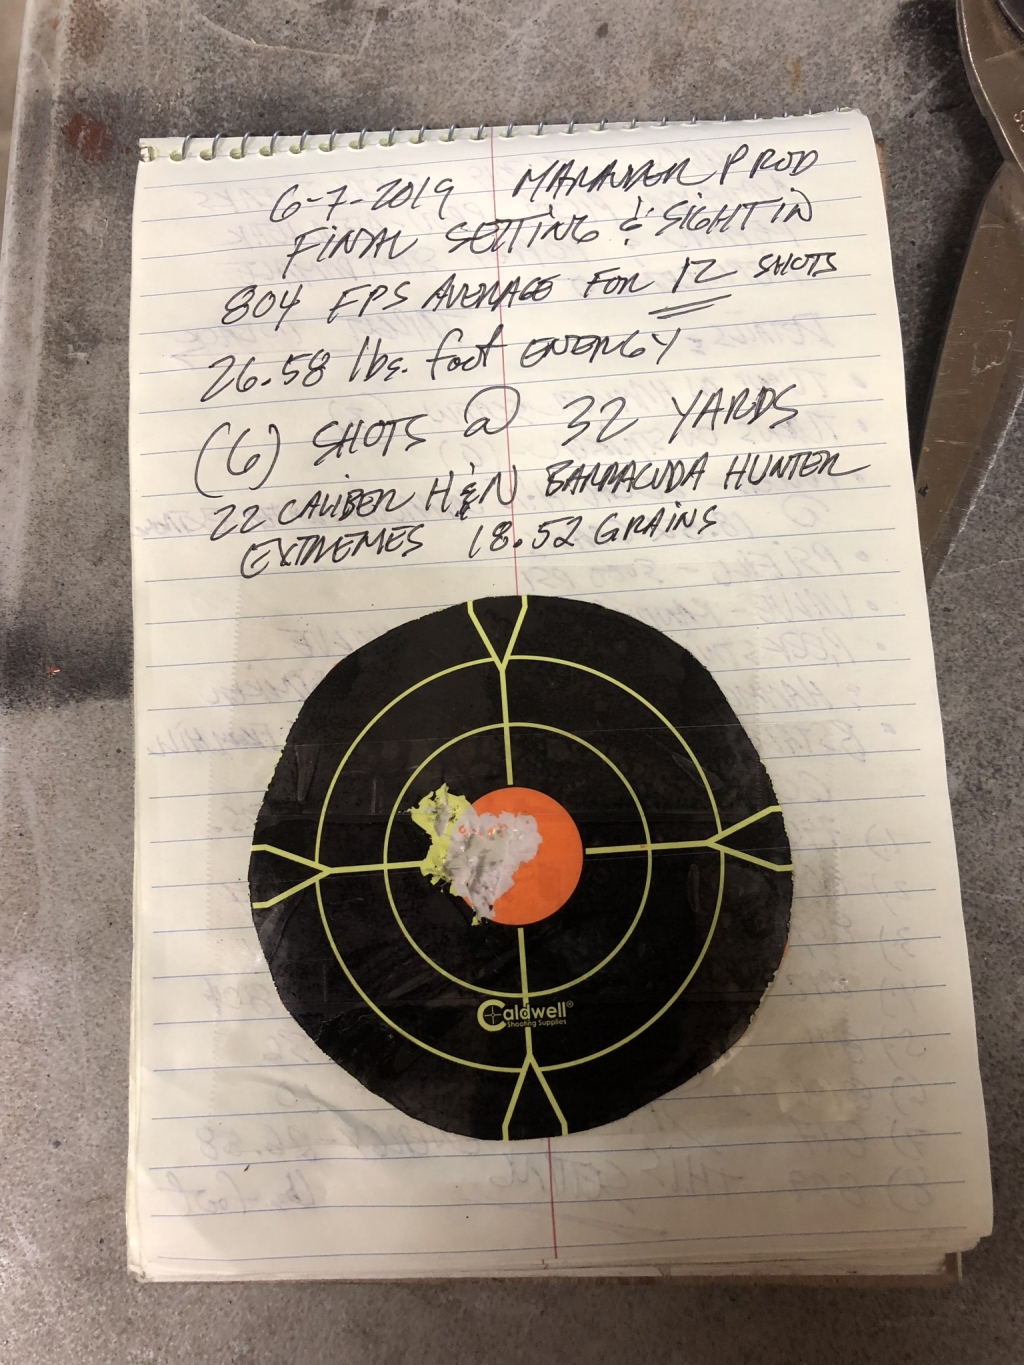 6-7-2019 MARAUDER PROD
FINAL SETTING & SIGHT IN
804 FPS AVERAGE FOR 12 SHOTS
26.58 lbs. foot ENERGY
(6) SHOTS @ 32 YARDS
22 CALIBER H&N BARRACUDA HUNTER
EXTREMES 18.52 GRAINS
Caldwell®
Shooting Supplies